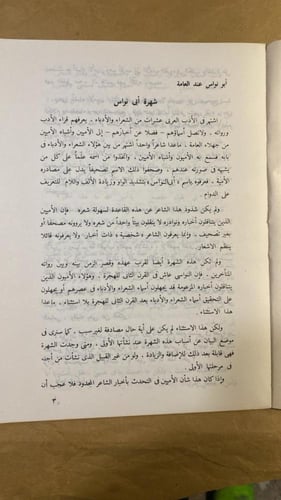 أبو نواس عند العامة
شهرة أبى نواس
اشتهر فى الأدب العربى عشرات من الشعراء والأدباء ، يعرفهم قراء الأدب
ورواته . ولا تصل أسماؤهم - فضلا عن أخبارهم - إلى الأميين وأشباه الأميين
من جهلاء العامة ، ماعدا شاعراً واحداً اشتهر من بين هؤلاء الشعراء والأدباء فى
بابه فتسمع به الأميون وأشباه الأميين ، واتخذوا من اسمه علماً على كل من
يشبهه فى صورته عندهم ، وصحفوا ذلك الاسم تصحيفاً يدل على مصادره
الأمية ، فعرفوه باسم « أبى النوّاس » بتشديد الواو وزيادة الألف واللام للتعريف
على الدوام .
ولم يكن شذوذ هذا الشاعر عن هذه القاعدة لسهولة شعره . فإن الأميين
الذين يتناقلون أخباره ونوادره لا ينقلون بيتاً واحداً من شعره ولا يروونه مصحفاً أو
بغير تصحيف . وإنما يعرفون الشاعر « شخصية » ذات أخبار ولا يعرفونه قائلا
ينظم الأشعار .
ولم تكن لهذه الشهرة أيضاً لقرب عهده وقصر الزمن بينه وبين رواته
المتأخرين . فإن النواسى عاش فى القرن الثانى للهجرة . وهؤلاء الأميين الذين
يتناقلون أخباره المزعومة قد يجهلون أسماء الشعراء والأدباء فى عصرهم أو يجهلون
على التحقيق أسماء الشعراء والأدباء بعد القرن الثانى للهجرة بلا استثناء ، ماعداه
ولكن هذا الاستثناء لم يكن على أية حال مصادفة لغير سبب . كما سنرى فى
موضع البيان عن أسباب هذه الشهرة عند نشأتها الأولى . ومتى وجدت الشهرة
فهى قابلة بعد ذلك للإضافة والزيادة . ولو من غير القبيل الذى نشأت من أجله
فى مرحلتها الأولى .
وإذا كان هذا شأن الأميين فى التحدث بأخبار الشاعر المجدود فلا عجب أن
٣